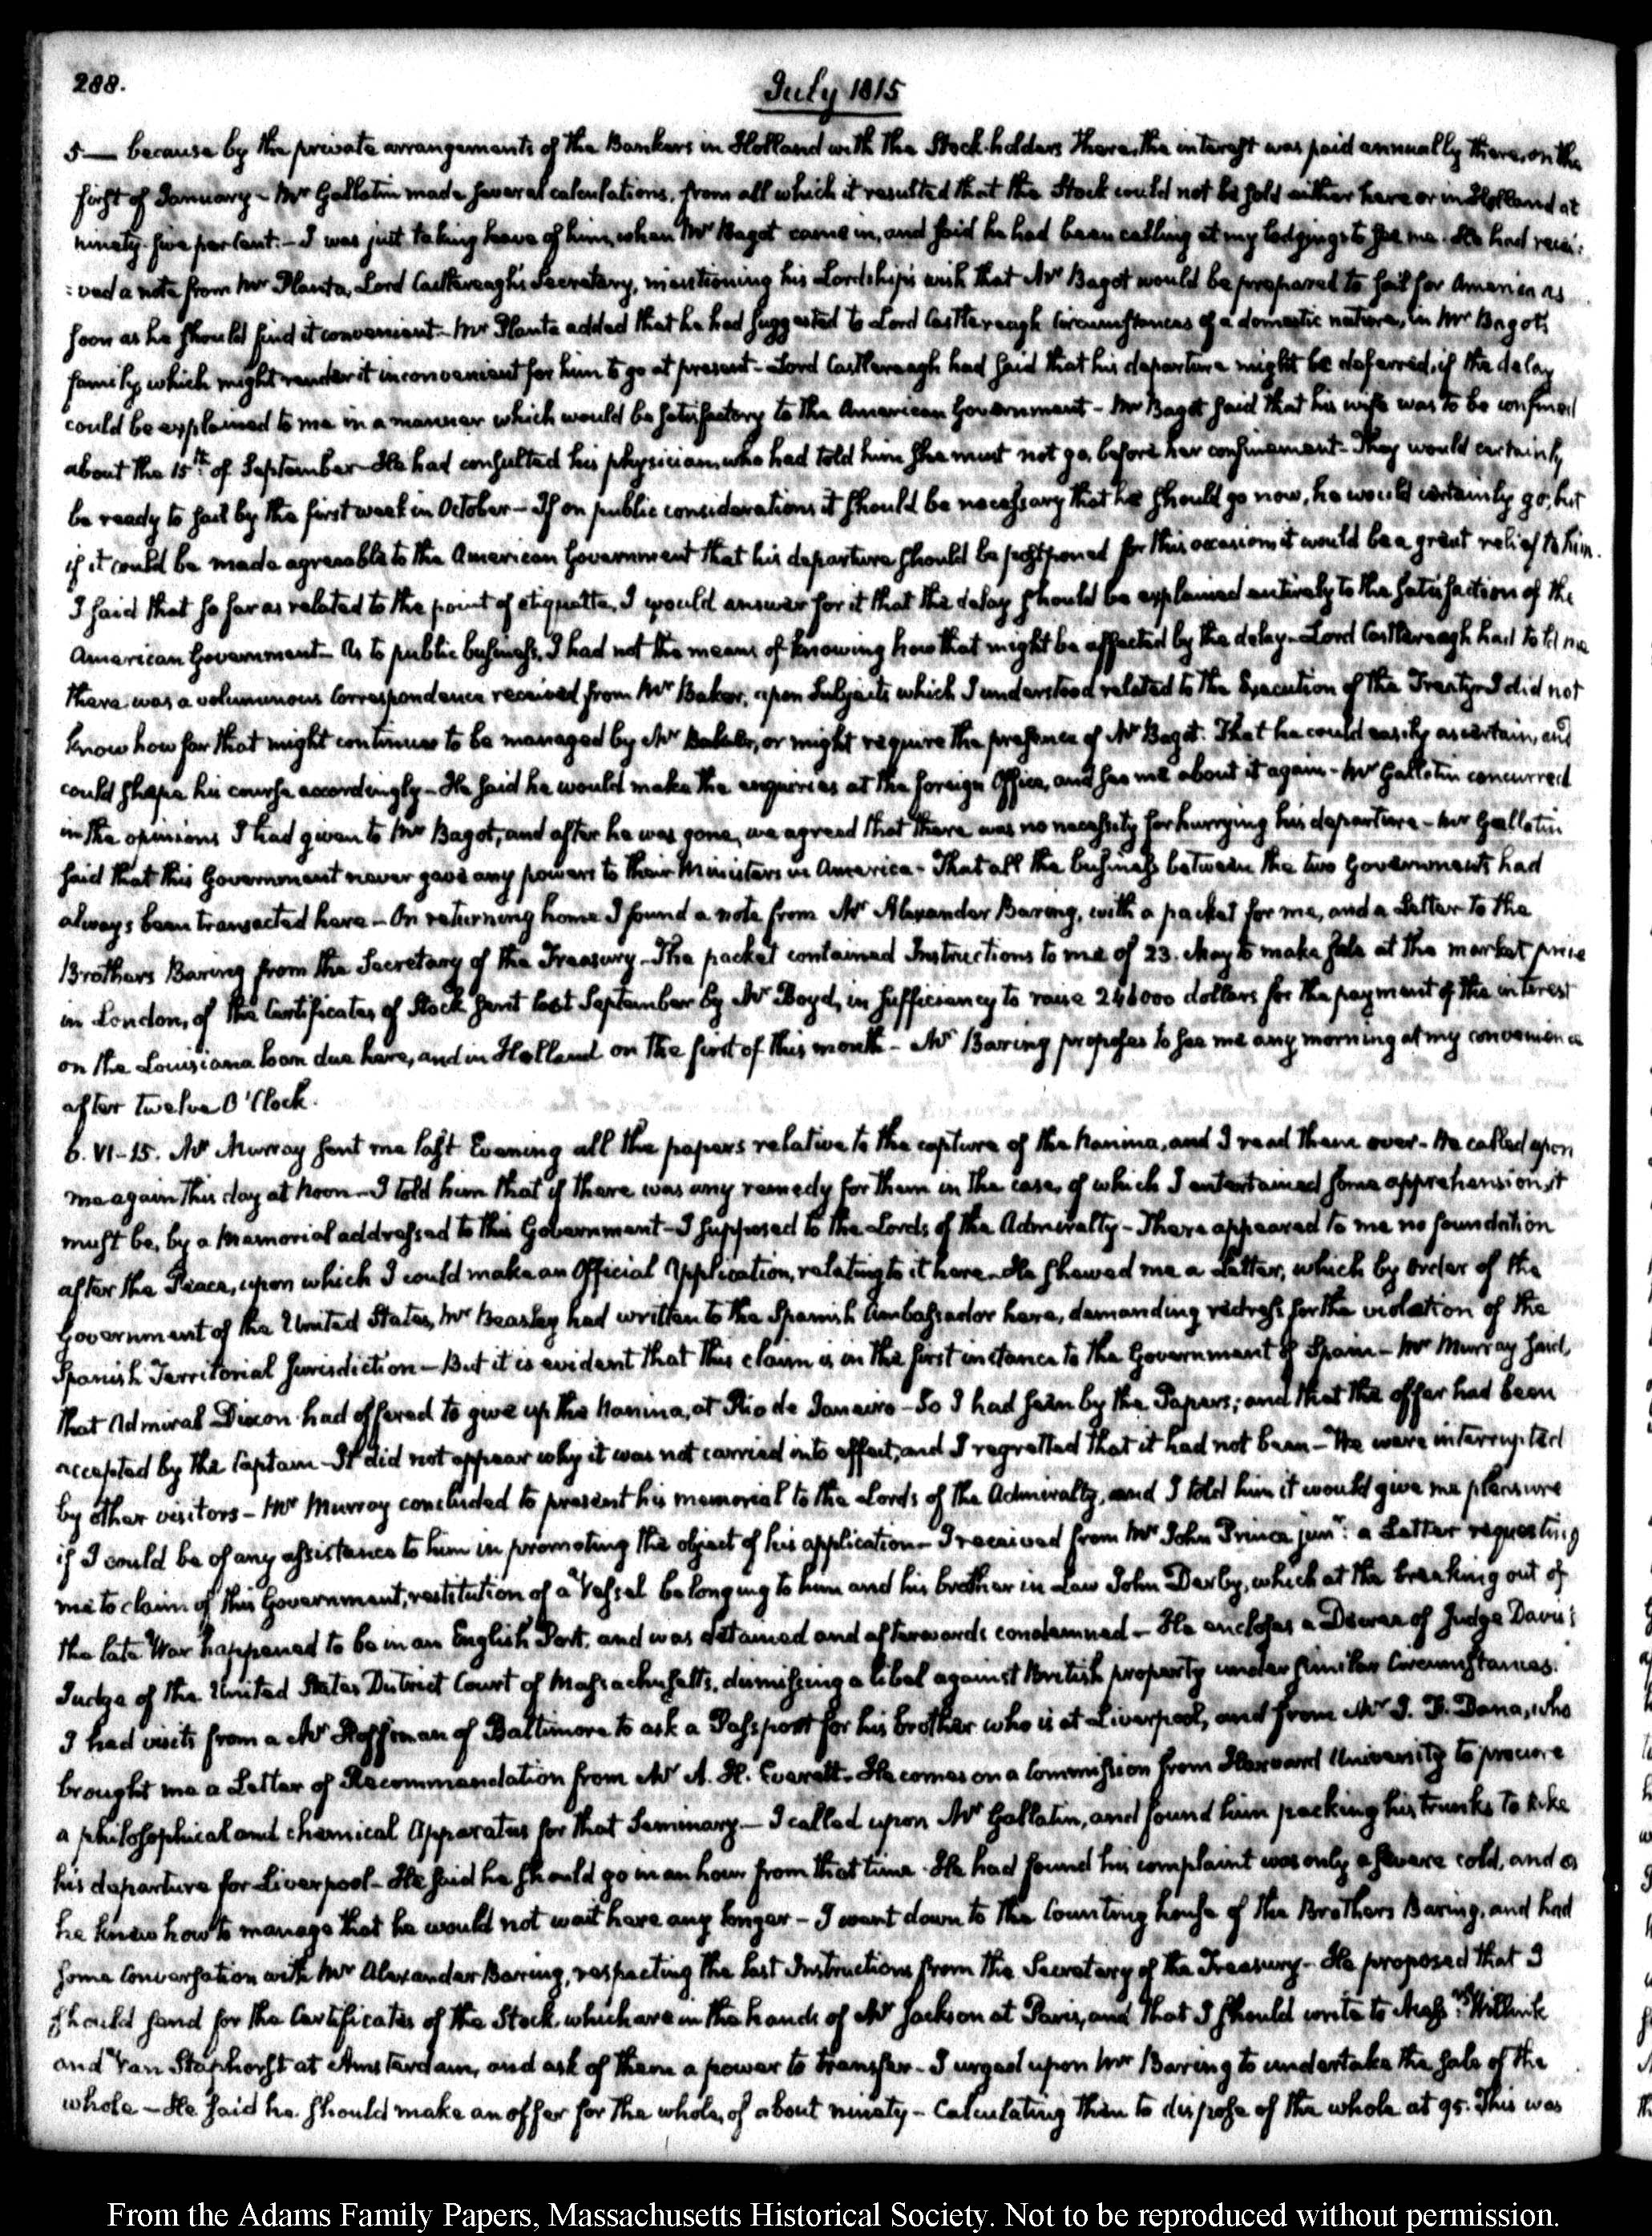 288.
July 1815
5— because by the private arrangements of the Bankers in Holland with the Stock-holders there, the interest was paid annually there, on the
first of January – Mr Gallatin made several calculations, from all which it resulted that the Stock could not be sold either here or in Holland at
ninety-five per Cent. – I was just taking leave of him, when Mr Bagot came in, and said he had been calling at my lodgings to see me. He had recei:
:ved a note from Mr Planta, Lord Castlereagh's Secretary, mentioning his Lordship's wish that Mr Bagot would be prepared to sail for America as
soon as he should find it convenient – Mr Planta added that he had suggested to Lord Castlereagh circumstances of a domestic nature, in Mr Bagot's
family, which might render it inconvenient for him to go at present – Lord Castlereagh had said that his departure might be deferred, if the delay
could be explained to me in a manner which would be satisfactory to the American Government – Mr Bagot said that his wife was to be confined
about the 15th of September – He had consulted his physician, who had told him she must not go, before her confinement – They would certainly
be ready to sail by the first week in October – If on public considerations it should be necessary that he should go now, he would certainly go, but
if it could be made agreeable to the American Government that his departure should be postponed for this occasion, it would be a great relief to him.
I said that so far as related to the point of etiquette, I would answer for it that the delay should be explained entirely to the satisfaction of the
American Government – As to public business, I had not the means of knowing how that might be affected by the delay – Lord Castlereagh had told me
there was a voluminous Correspondence received from Mr Baker, upon Subjects which I understood related to the Execution of the Treaty – I did not
know how far that might continue to be managed by Mr Baker, or might require the presence of Mr Bagot. That he could easily ascertain, and
could shape his course accordingly – He said he would make the enquiries at the foreign Office, and see me about it again – Mr Gallatin concurred
in the opinions I had given to Mr Bagot, and after he was gone, we agreed that there was no necessity for hurrying his departure – Mr Gallatin
said that this Government never gave any powers to their Ministers in America – That all the business between the two Governments had
always been transacted here – On returning home I found a note from Mr Alexander Baring, with a packet for me, and a Letter to the
Brothers Baring from the Secretary of the Treasury – The packet contained Instructions to me of 23. May to make sale at the market price
in London, of the Certificates of Stock sent last September by Mr Boyd, in sufficiency to raise 246000 dollars for the payment of the interest
on the Louisiana loan due here, and in Holland on the first of this month – Mr Baring proposes to see me any morning at my convenience
after twelve O'Clock.
6. VI–15. Mr Murray sent me last Evening all the papers relative to the capture of the Nanina, and I read them over – He called upon
me again this day at Noon – I told him that if there was any remedy for them in the case, of which I entertained some apprehension, it
must be, by a Memorial addressed to this Government – I supposed to the Lords of the Admiralty – There appeared to me no foundation
after the Peace, upon which I could make an Official Application, relating to it here – He shewed me a Letter, which by Order of the
Government of the United States, Mr Beasley had written to the Spanish Ambassador here, demanding redress for the violation of the
Spanish Territorial Jurisdiction – But it is evident that this claim is in the first instance to the Government of Spain – Mr Murray said,
that Admiral Dixon had offered to give up the Nanina, at Rio de Janeiro – So I had seen by the Papers; and that the offer had been
accepted by the Captain – It did not appear why it was not carried into effect, and I regretted that it had not been – We were interrupted
by other visitors – Mr Murray concluded to present his memorial to the Lords of the Admiralty, and I told him it would give me pleasure
if I could be of any assistance to him in promoting the object of his application – I received from Mr John Prince junr: a Letter requesting
me to claim of this Government, restitution of a Vessel belonging to him and his brother in Law John Derby, which at the breaking out of
the late War happened to be in an English Port, and was detained and afterwards condemned – He encloses a Decree of Judge Davis
Judge of the United States District Court of Massachusetts, dismissing a libel against British property under similar Circumstances.
I had visits from a Mr Hoffman of Baltimore to ask a Passport for his brother who is at Liverpool, and from Mr J. F. Dana, who
brought me a Letter of Recommendation from Mr A. H. Everett – He comes on a Commission from Harvard University to procure
a philosophical and chemical Apparatus for that Seminary – I called upon Mr Gallatin, and found him packing his trunks to take
his departure for Liverpool – He said he should go in an hour from that time. He had found his complaint was only a severe cold, and as
he knew how to manage that he would not wait here any longer – I went down to the Counting house of the Brothers Baring, and had
some Conversation with Mr Alexander Baring, respecting the last Instructions from the Secretary of the Treasury – He proposed that I
should send for the Certificates of the Stock which are in the hands of Mr Jackson at Paris, and that I should write to Messrs: Willink
and Van Staphorst at Amsterdam, and ask of them a power to transfer – I urged upon Mr Baring to undertake the sale of the
whole – He said he should make an offer for the whole, of about ninety – Calculating then to dispose of the whole at 95. This was
From the Adams Family Papers, Massachusetts Historical Society. Not to be reproduced without permission.